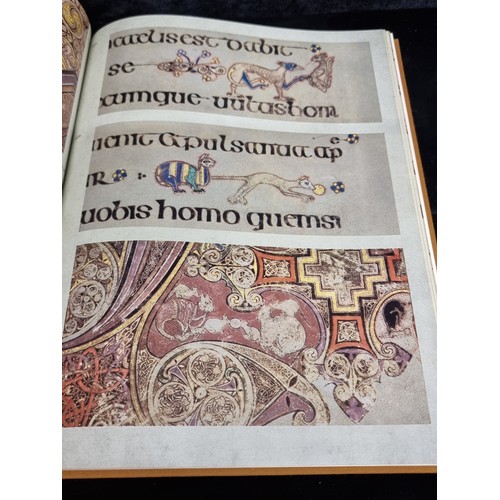 incaelisest dabit
se
cumque uultis hom
uenit & pulsanti ap
uobis homo quemsi